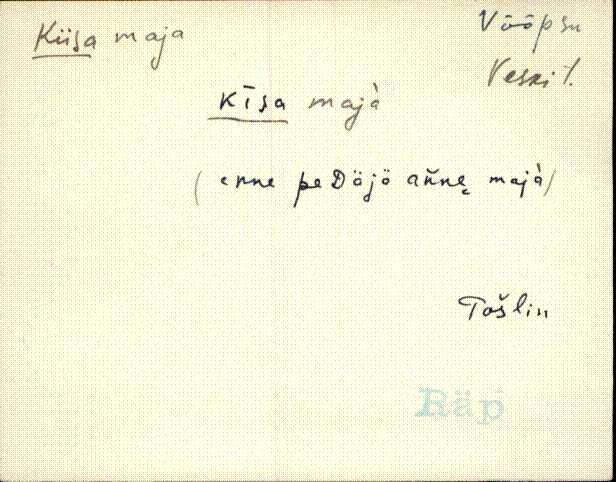 Kiisa maja
Võõpsu
Veski t.
kīsa majà
(enne peDäjä añnę majà)
Tošlin
Räp